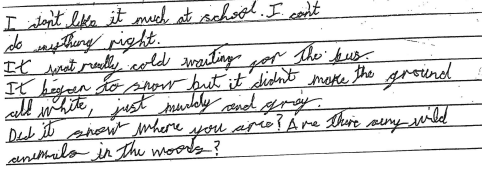 I don't like it much at school. I can't
do anything right.
It was really cold waiting for the bus.
It began to snow but it didn't make the ground
all white, just muddy and gray.
Did it snow where you are? Are there any wild
animals in the woods?